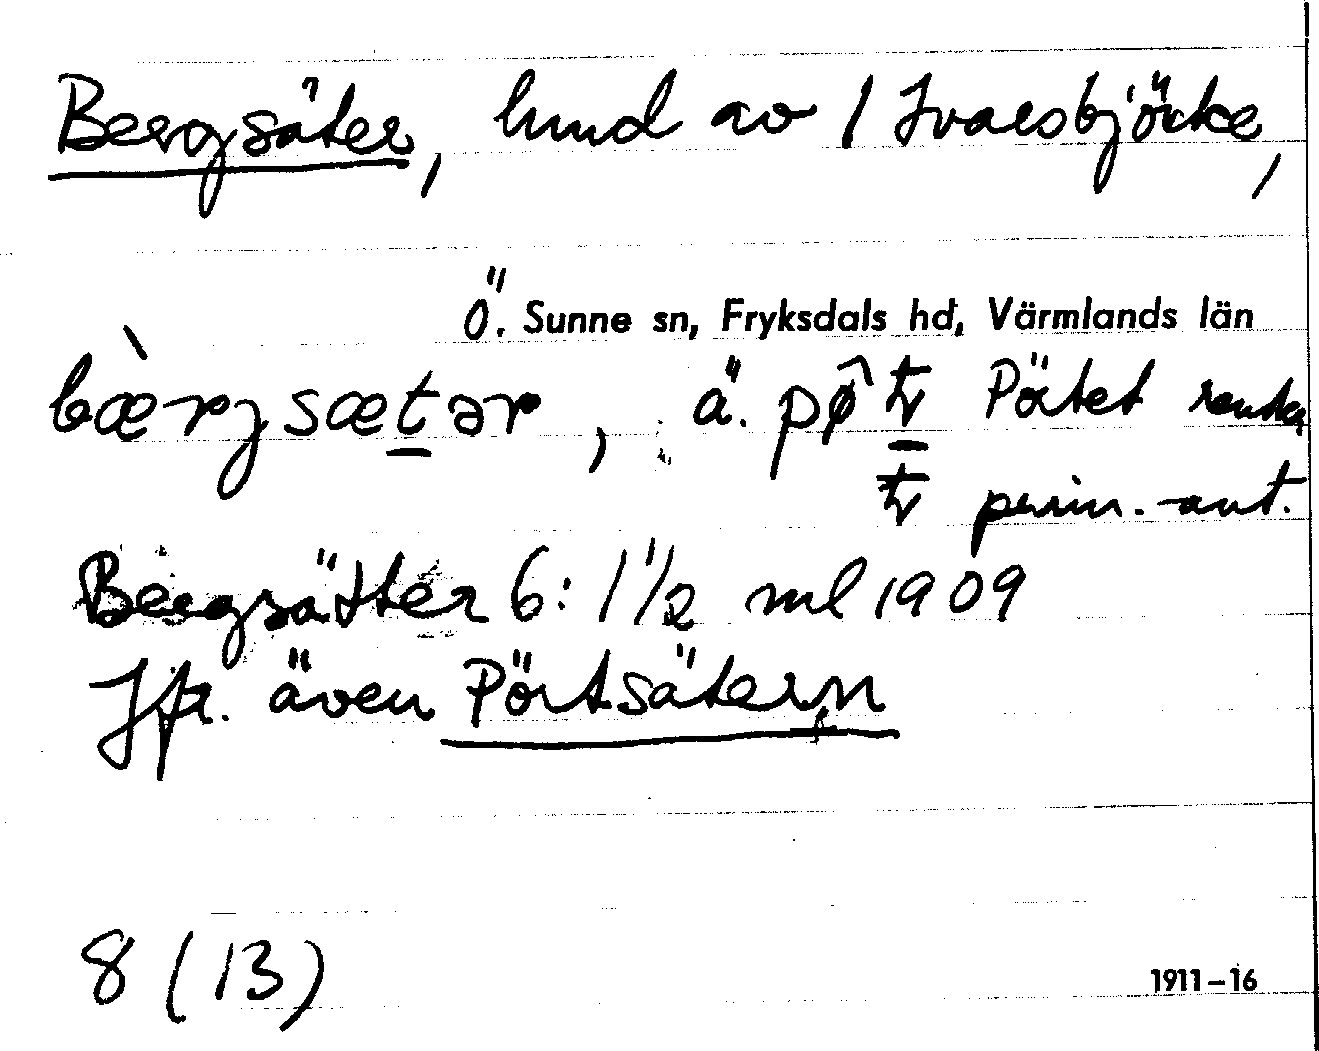 Bergsäter, hmd av 1 Ivarsbjörke,
Ö. Sunne sn, Fryksdals hd, Värmlands län
bæ̀rgsætər, ä. pø̂t Pörtet
penin. -ant.
Bergsätter 6: 1 1/2 ml 1909
Jfr. även Pörtsätern
8 (13)
1911–16